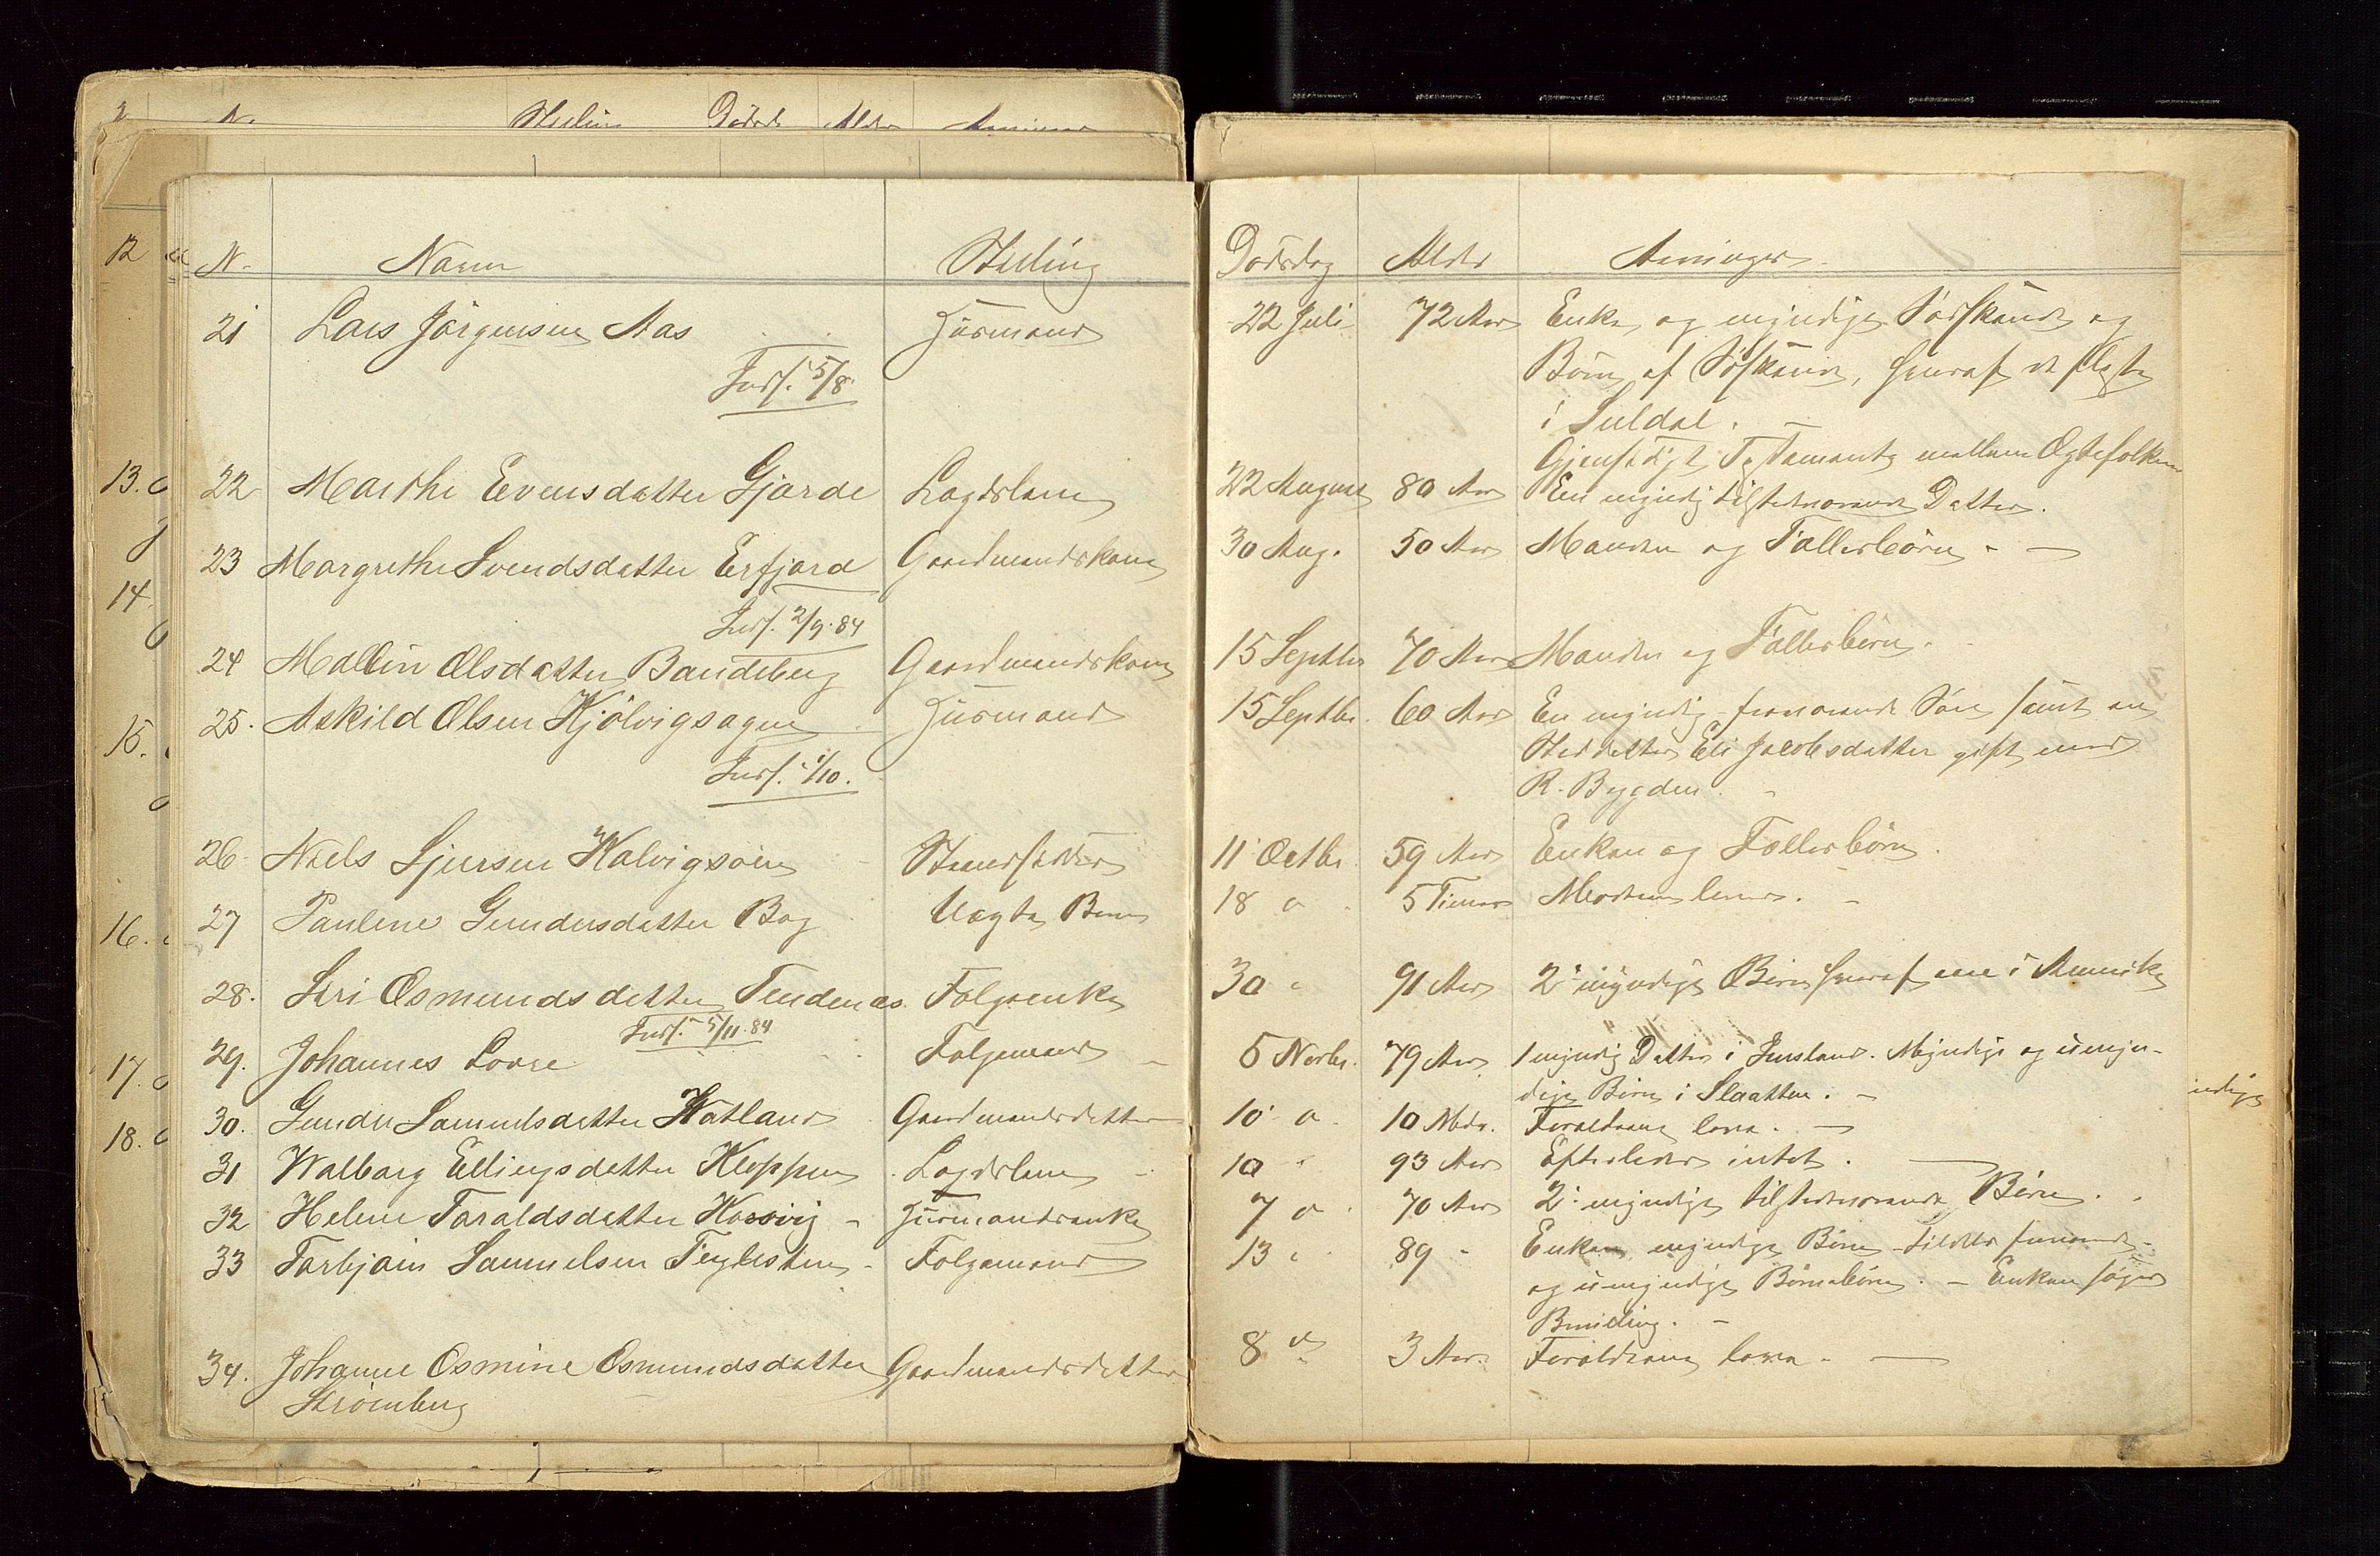 N. Navn Stilling Dödsdag Alder Arvinger
21 Lars Jörgensen Aas Husmand 22 Juli 72 Aar Enke og myndige Södskende og
Börn af Södskende, hvoraf de fleste
i Suldal.
Indf. 5/8
Gjensidigt Testamente mellem Ægtefolkene
22 Marthe Evensdatter Gjerde Lægdslem 22 August 80 Aar En myndig tilstedeværende Datter.
23 Margrethe Svendsdatter Erfjord Gaardmandskone 30 Aug. 50 Aar Manden og Fællesbörn. —
Indf. 2/9. 84
24 Mallin Olsdatter Bandeberg Gaardmandskone 15 Septbr 70 Aar Manden og Fællesbörn.
25. Askild Olsen Hjölvigsagen Husmand 15 Septbr. 60 Aar En myndig fraværende Sön samt en
Steddatter Eli Jacobsdatter gift med
R. Bygden.
Indf. 1/10.
26 Niels Sjursen Halvigsöen 11 Octbr. 59 Aar Enken og Fællesbörn.
27 Paulene Gundersdatter Bog Uægte Barn 18 " 5 Timer Moderen lever.
28. Siri Osmundsdatter Tendenes. Folgeenke 30 " 91 Aar 2 myndige Börn hvoraf en i Amerika
Indf. 5/11. 84
29. Johannes Lovre Folgemand 5 Novbr. 79 Aar 1 myndig Datter i Indland. Myndige og umyn-
dige Börn i Slaatten.
30. Samuelsdatter Hatland Gaardmandsdatter 10 " 10 Mdr. Forældrene leve. —
31 Walborg Ellingsdatter Kleppen Lægdslem 10 " 93 Aar Efterlader intet.
32 Helene Taraldsdatter Husmandsenke 7 " 70 Aar 2 myndige tilstedeværende Börn.
33 Torbjörn Samuelsen Teglesteen Folgemand 13 " 89 " Enke, myndige Börn – tildels fraværende –
og umyndige Börnebörn. – Enken söger
Bevilling. –
34. Johanne Osmine Osmundsdatter Gaardmandsdatter 8 " 3 Aar. Forældrene leve. —
Strömberg